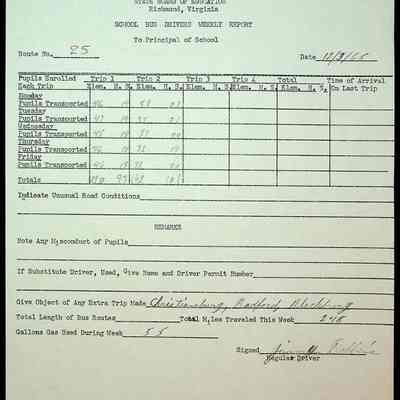 STATE BOARD OF EDUCATION
Richmond, Virginia
SCHOOL BUS DRIVERS WEEKLY REPORT
To Principal of School
Route No. 25
Date 12/3/65
Pupils Enrolled Trip 1 Trip 2 Trip 3 Trip 4 Total Time of Arrival
Each Trip Elem. H. S. Elem. H. S. Elem. H. S. Elem. H. S. Elem. H. S. On Last Trip
Monday
Pupils Transported 46 19
Tuesday
Pupils Transported 47 19
Wednesday
Pupils Transported 19
Thursday
Pupils Transported 19
Friday
Pupils Transported 46 19
Totals
Indicate Unusual Road Conditions
REMARKS
Note Any Misconduct of Pupils
If Substitute Driver, Used, Give Name and Driver Permit Number
Give Object of Any Extra Trip Made Christiansburg, Radford, Blacksburg
Total Length of Bus Routes Total Miles Traveled This Week 248
Gallons Gas Used During Week 55
Signed
Regular Driver